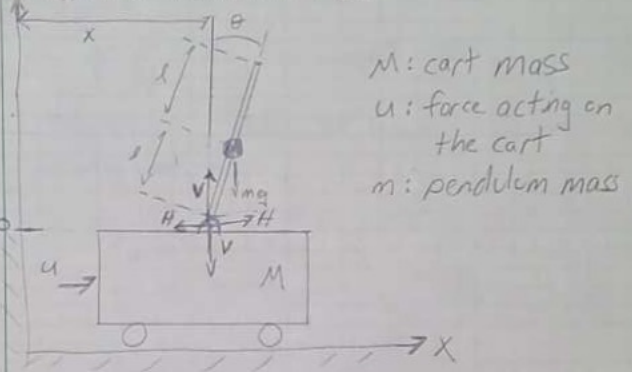 x
θ
l
l
V
mg
H
H
V
u
M
X
M: cart mass
u: force acting on
the cart
m: pendulum mass